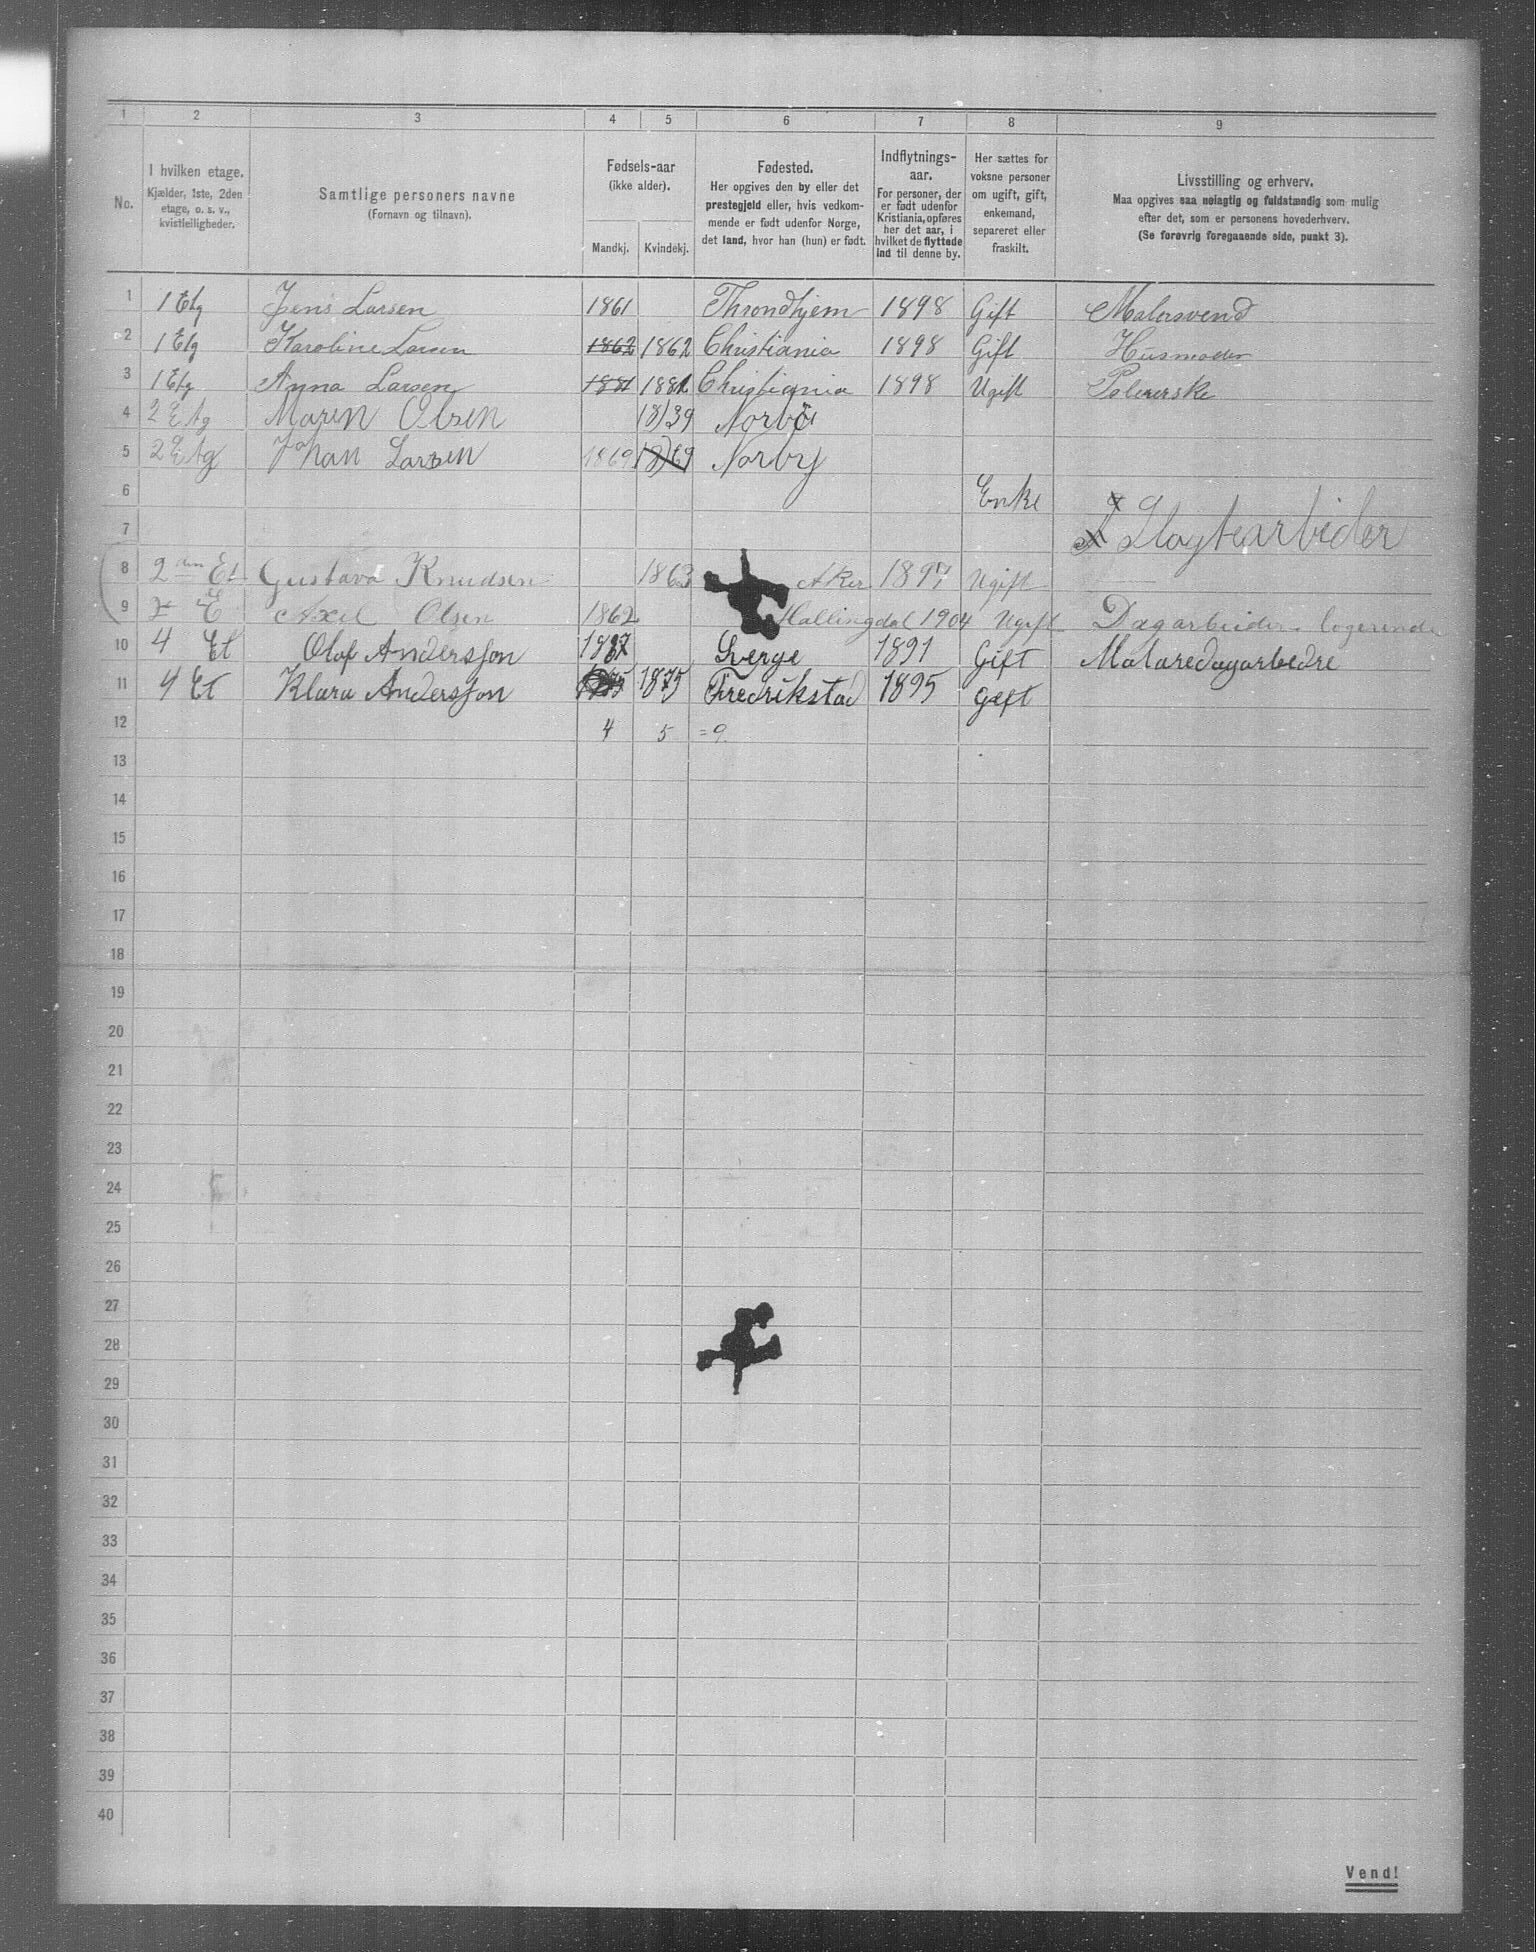 1 2 3 4 5 6 7 8 9
No.
I hvilken etage.
Kjælder, 1ste, 2den
etage, o. s. v.,
kvistleiligheder.
Samtlige personers navne
(Fornavn og tilnavn).
Fødsels-aar
(ikke alder).
Mandkj. Kvindekj.
Fødested.
Her opgives den by eller det
prestegjeld eller, hvis vedkom-
mende er født udenfor Norge,
det land, hvor han (hun) er født.
Indflytnings-
aar.
For personer, der
er født udenfor
Kristiania, opføres
her det aar, i
hvilket de flyttede
ind til denne by.
Her sættes for
voksne personer
om ugift, gift,
enkemand,
separeret eller
fraskilt.
Livsstilling og erhverv.
Maa opgives saa nøiagtig og fuldstændig som mulig
efter det, som er personens hovederhverv.
(Se forøvrig foregaaende side, punkt 3).
1 1 Etg Jens Larsen 1861 Throndhjem 1898 Gift Malersvend
2 1 Etg Karoline Larsen 1862 1862 Christiania 1898 Gift Husmoder
3 1 Etg Anna Larsen 1881 1881 Christiania 1898 Ugift Polererske
4 2 Etg Maren Olsen 1839
5 2 Etg Johan Larsen 1869 1869 Norby
6 Enke
7 Slagtearbider
8 2den Et Gustava Knudsen 1863 Aker 1897 Ugift
9 2 E Axel Olsen 1862 Hallingdal 1904 Ugift Dagarbeider logerende
10 4 Et Olof Andersson Sverge 1891 Gift Malaredagarbedre
11 4 Et Klara Andersson 1875 1875 Fredrikstad 1895 Gift
12 4 5 = 9.
13
14
15
16
17
18
19
20
21
22
23
24
25
26
27
28
29
30
31
32
33
34
35
36
37
38
39
40
Vend!